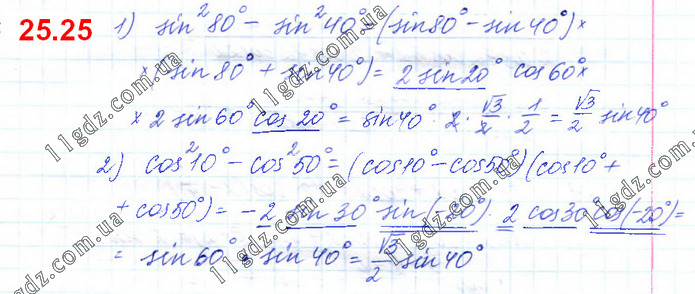 25.25 1) sin²80° − sin²40° = (sin80° − sin40°) ×
× (sin80° + sin40°) = 2 sin20° cos60° ×
× 2 sin60° cos20° = sin40° · 2 · √3/2 · 1/2 = √3/2 sin40°
2) cos²10° − cos²50° = (cos10° − cos50°)(cos10° +
+ cos50°) = −2 sin30° sin(−20°) · 2 cos30° cos(−20°) =
= sin60° · sin40° = √3/2 sin40°
11gdz.com.ua
11gdz.com.ua
11gdz.com.ua
11gdz.com.ua
11gdz.com.ua
11gdz.com.ua